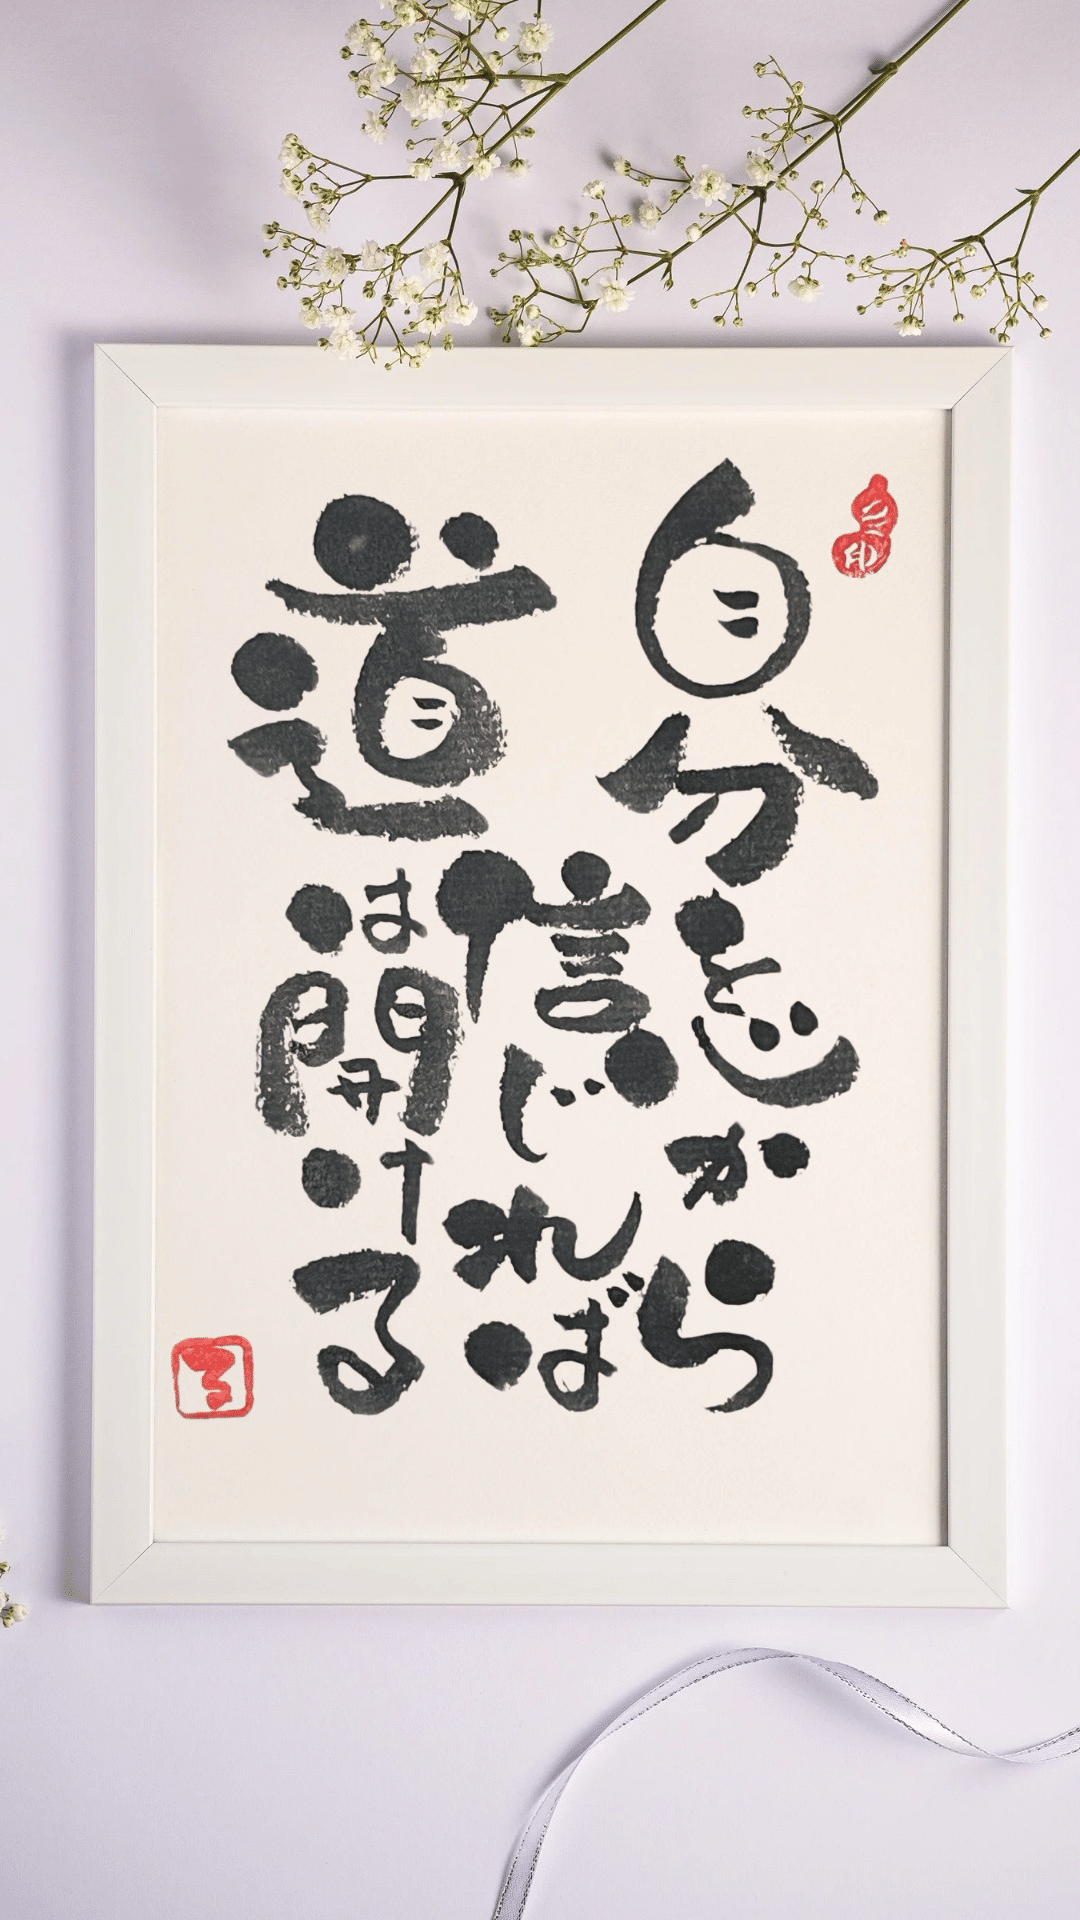 自分を心から
信じれば
道は開ける